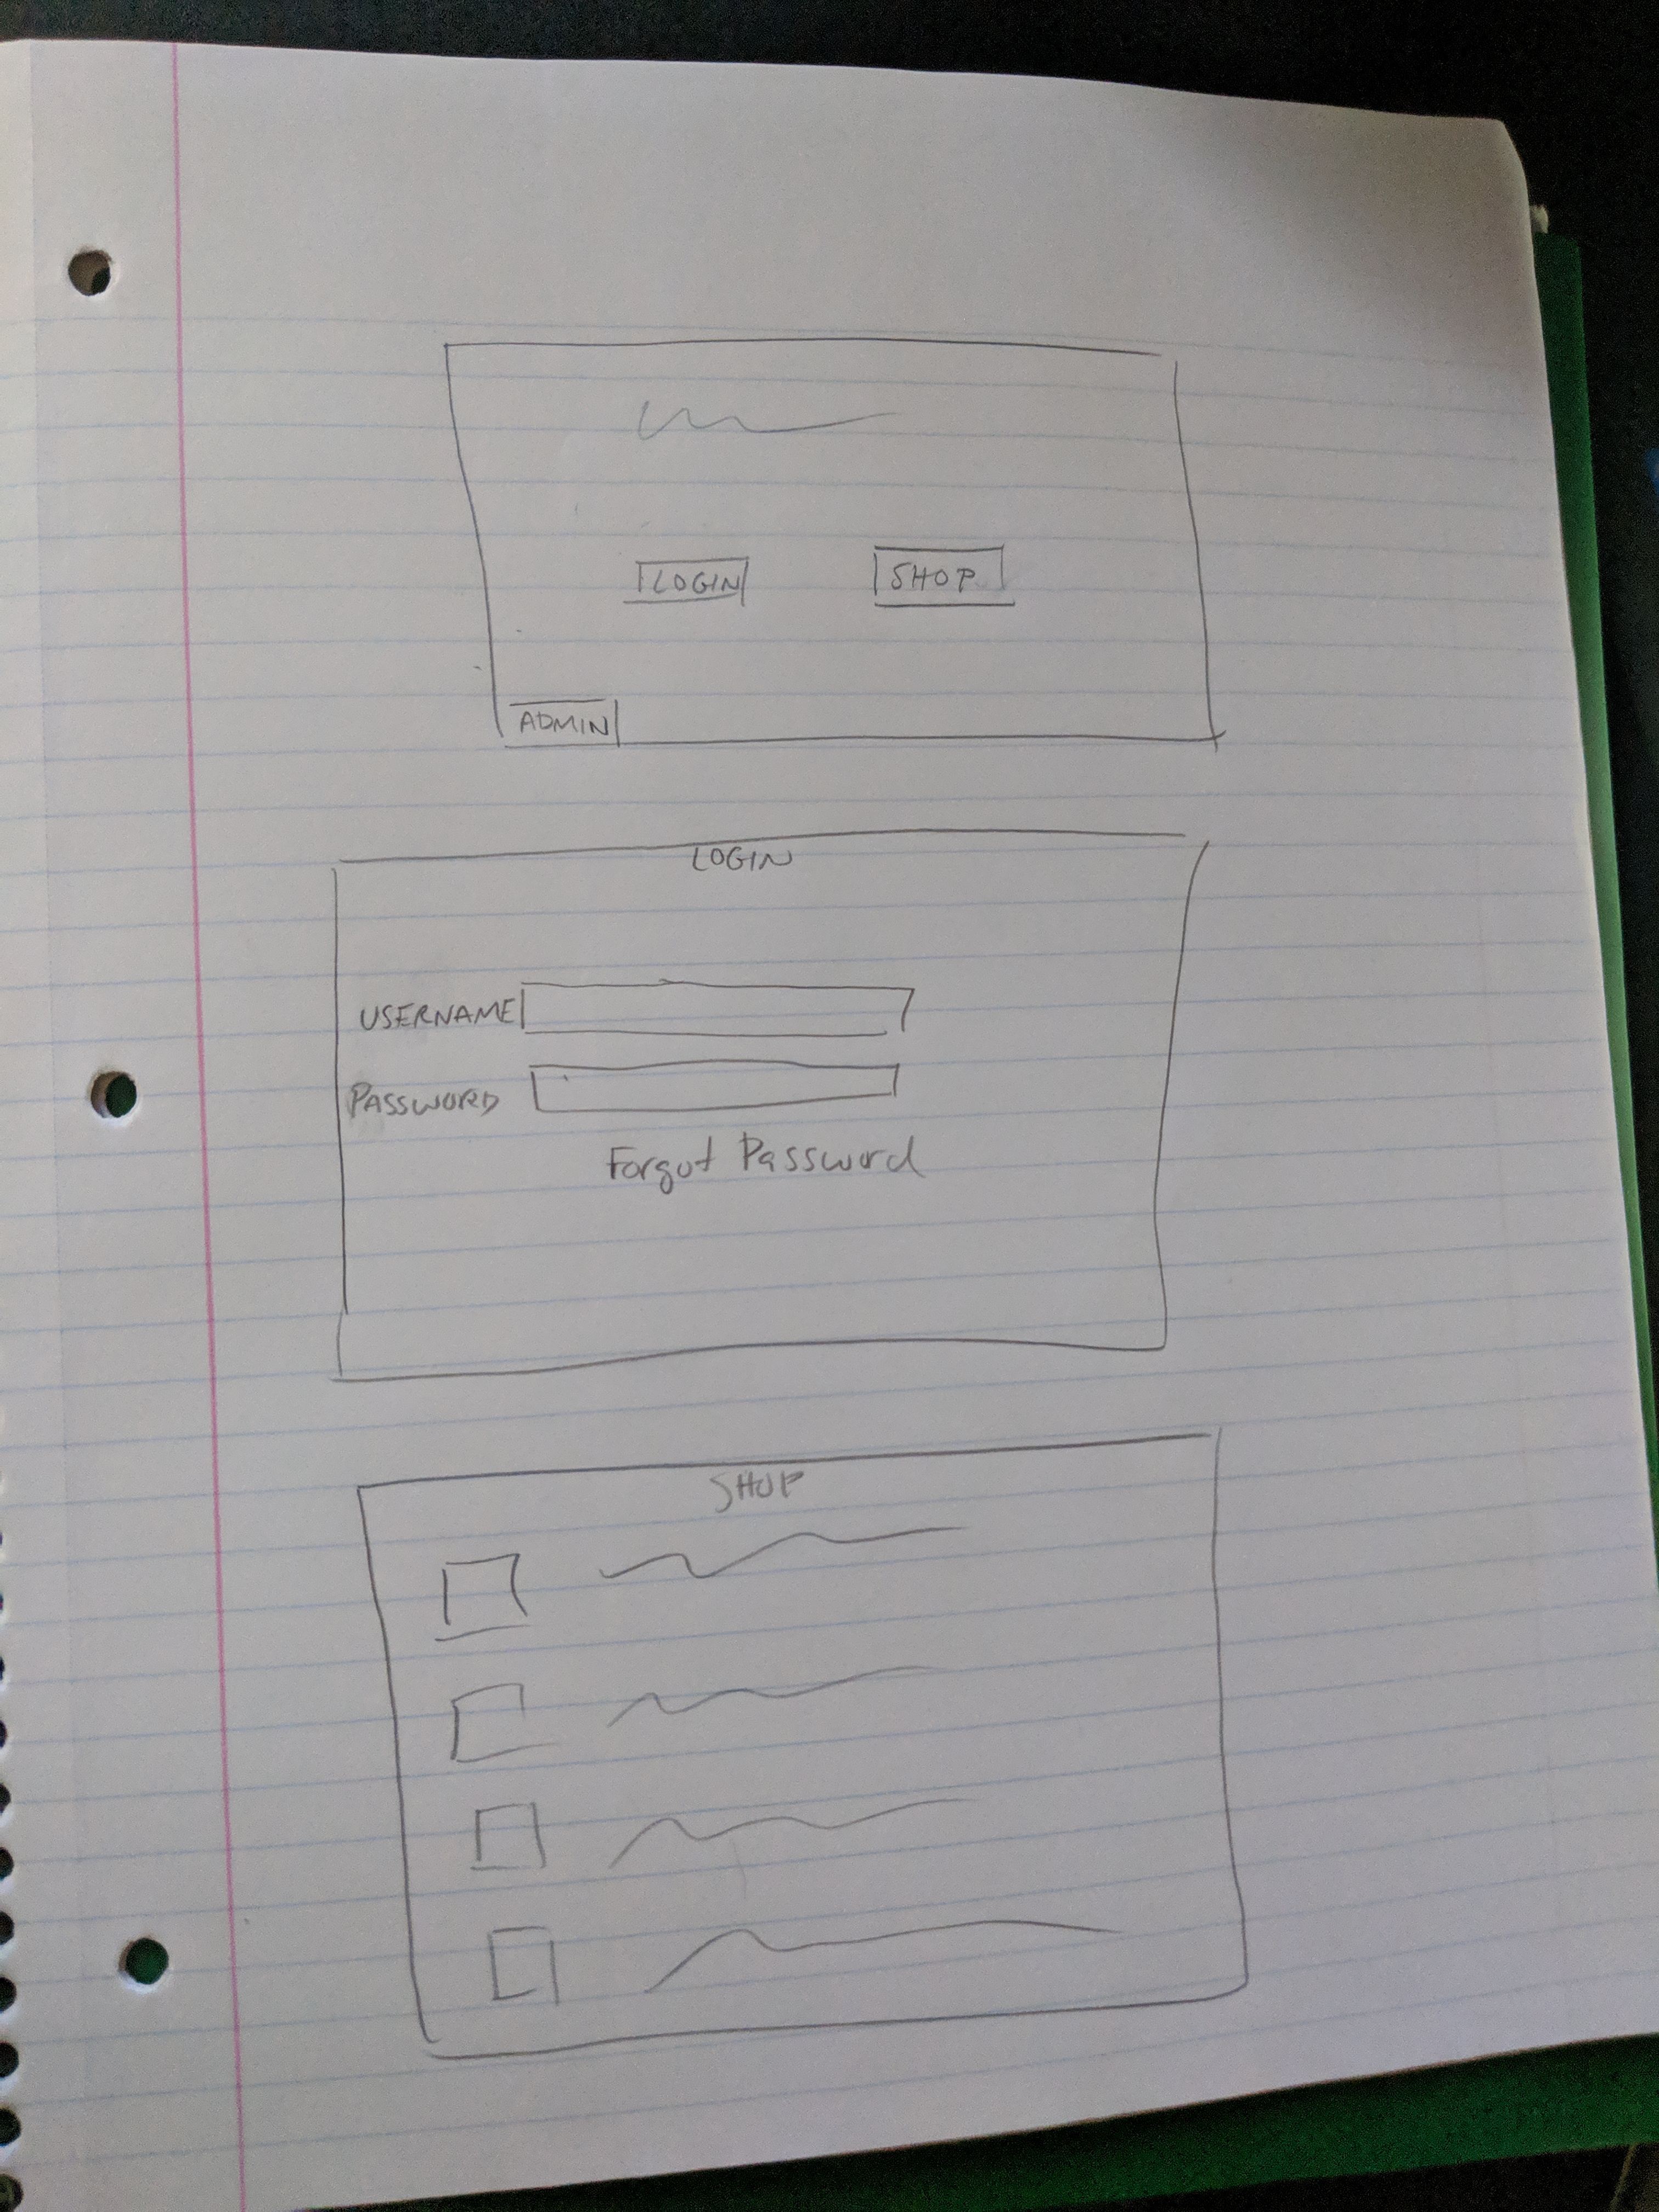 LOGIN SHOP
ADMIN
LOGIN
USERNAME
PASSWORD
Forgot Password
SHOP